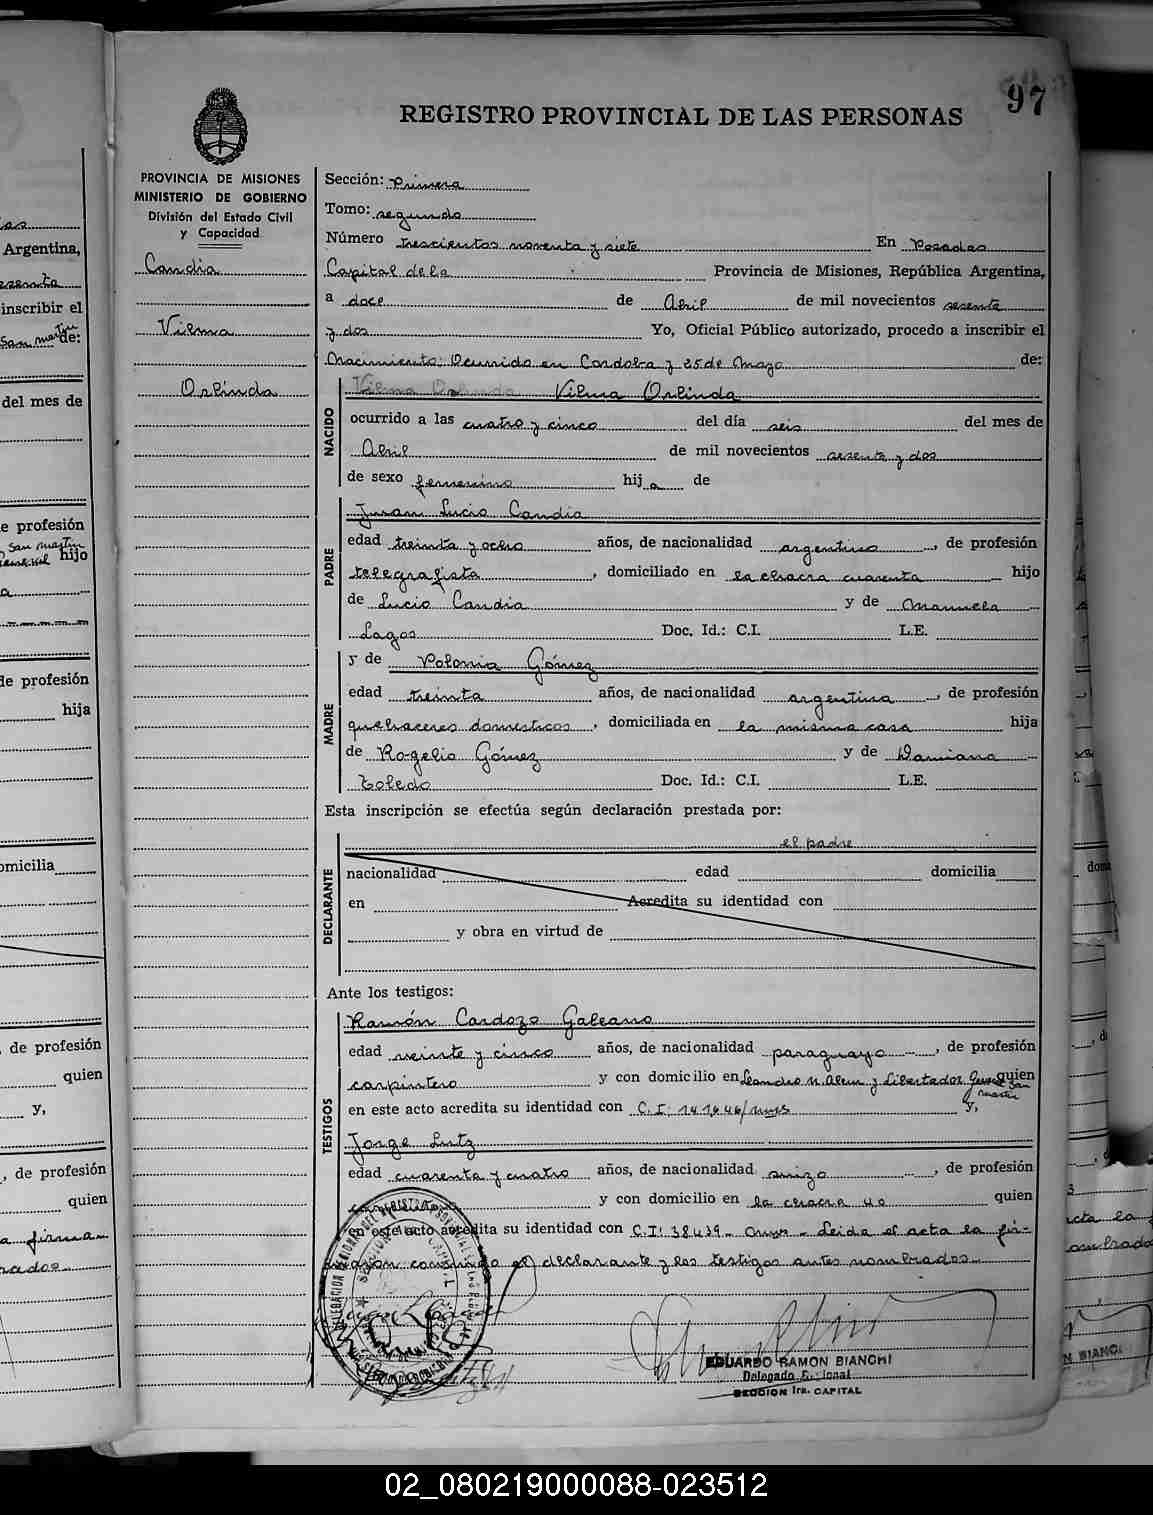 97
REGISTRO PROVINCIAL DE LAS PERSONAS
PROVINCIA DE MISIONES
MINISTERIO DE GOBIERNO
División del Estado Civil
y Capacidad
Candia
Vilma
Orlinda
Sección: Primera
Tomo: segundo
Número trescientos noventa y siete En Posadas
Capital de la Provincia de Misiones, República Argentina,
a doce de Abril de mil novecientos sesenta
y dos Yo, Oficial Público autorizado, procedo a inscribir el
Nacimiento: Ocurrido en Cordoba y 25 de Mayo de:
NACIDO
Vilma Orlinda Vilma Orlinda
ocurrido a las cuatro y cinco del día seis del mes de
Abril de mil novecientos sesenta y dos
de sexo femenino hija de
PADRE
Juan Lucio Candia
edad treinta y ocho años, de nacionalidad argentino, de profesión
telegrafista, domiciliado en la chacra cuarenta hijo
de Lucio Candia y de Manuela
Lagos Doc. Id.: C.I. L.E.
MADRE
y de Polonia Gómez
edad treinta años, de nacionalidad argentina, de profesión
quehaceres domesticos, domiciliada en la misma casa hija
de Rogelio Gómez y de Damiana
Toledo Doc. Id.: C.I. L.E.
Esta inscripción se efectúa según declaración prestada por:
DECLARANTE
el padre
nacionalidad edad domicilia
en Acredita su identidad con
y obra en virtud de
Ante los testigos:
TESTIGOS
Ramón Cardozo Galeano
edad veinte y cinco años, de nacionalidad paraguayo, de profesión
carpintero y con domicilio en Leandro N. Alem y Libertador Gral San Martin quien
en este acto acredita su identidad con C.I: 141646/mnes y,
Jorge Lutz
edad cuarenta y cuatro años, de nacionalidad suizo, de profesión
y con domicilio en la chacra 40 quien
en este acto acredita su identidad con C.I: 38439- Mnes- Leida el acta la fir-
maron conmigo el declarante y los testigos antes nombrados
EDUARDO RAMON BIANCHI
Delegado
SECCION 1ra. CAPITAL
Argentina,
inscribir el
San Martin de:
del mes de
de profesión
San Martin
hijo
de profesión
hija
domicilia
de profesión
quien
y,
de profesión
quien
a firma
rados
02_080219000088-023512